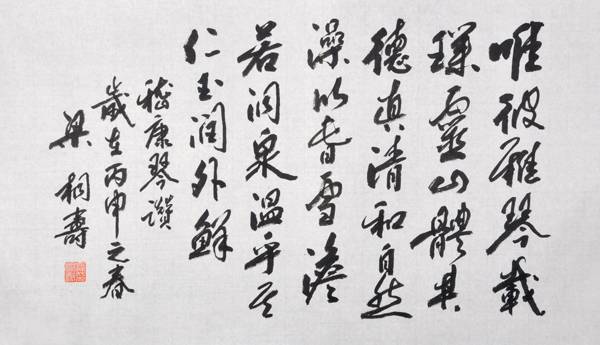 唯彼雅琴載
璞靈山體其
德真清和自然
澡以春雪澹
若洞泉溫乎其
仁玉潤外鮮
嵇康琴讚
歲在丙申之春
梁桐壽